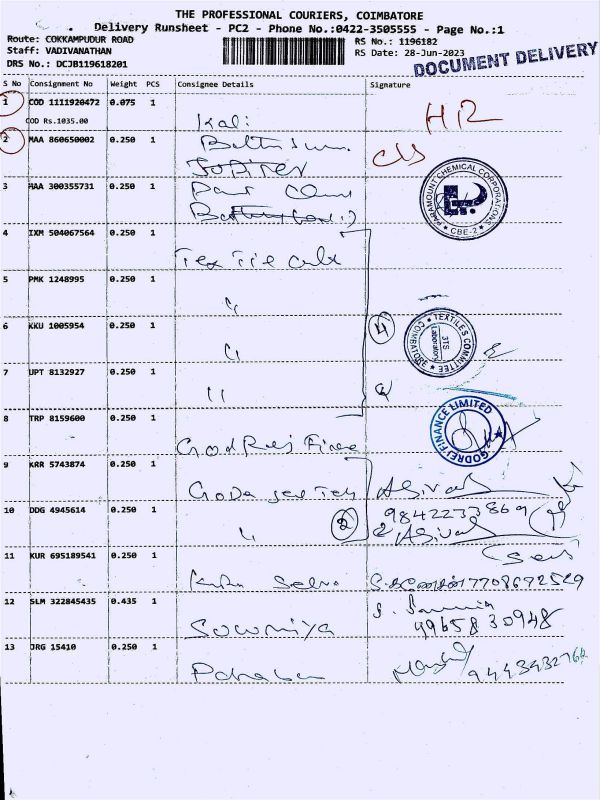 THE PROFESSIONAL COURIERS, COIMBATORE
Delivery Runsheet - PC2 - Phone No.:0422-3505555 - Page No.:1
Route: COKKAMPUDUR ROAD
Staff: VADIVANATHAN
DRS No.: DCJB119618201
RS No.: 1196182
RS Date: 28-Jun-2023
DOCUMENT DELIVERY
S No Consignment No Weight PCS Consignee Details Signature
1 COD 1111920472 0.075 1
COD Rs.1035.00
Kali
HR
2 MAA 860650002 0.250 1
Jupiter
3 MAA 300355731 0.250 1
PARAMOUNT CHEMICAL CORPORATIONS
CBE-2
4 IXM 504067564 0.250 1
5 PMK 1248995 0.250 1
"
6 KKU 1005954 0.250 1
"
4
TEXTILES COMMITTEE
COIMBATORE
Laboratory
7 UPT 8132927 0.250 1
"
8 TRP 8159600 0.250 1
Godrej Finance
GODREJ FINANCE LIMITED
9 KRR 5743874 0.250 1
10 DDG 4945614 0.250 1
"
2
9842233869
11 KUR 695189541 0.250 1
7708672529
12 SLM 322845435 0.435 1
Sowmiya
9965830948
13 JRG 15410 0.250 1
9443432762